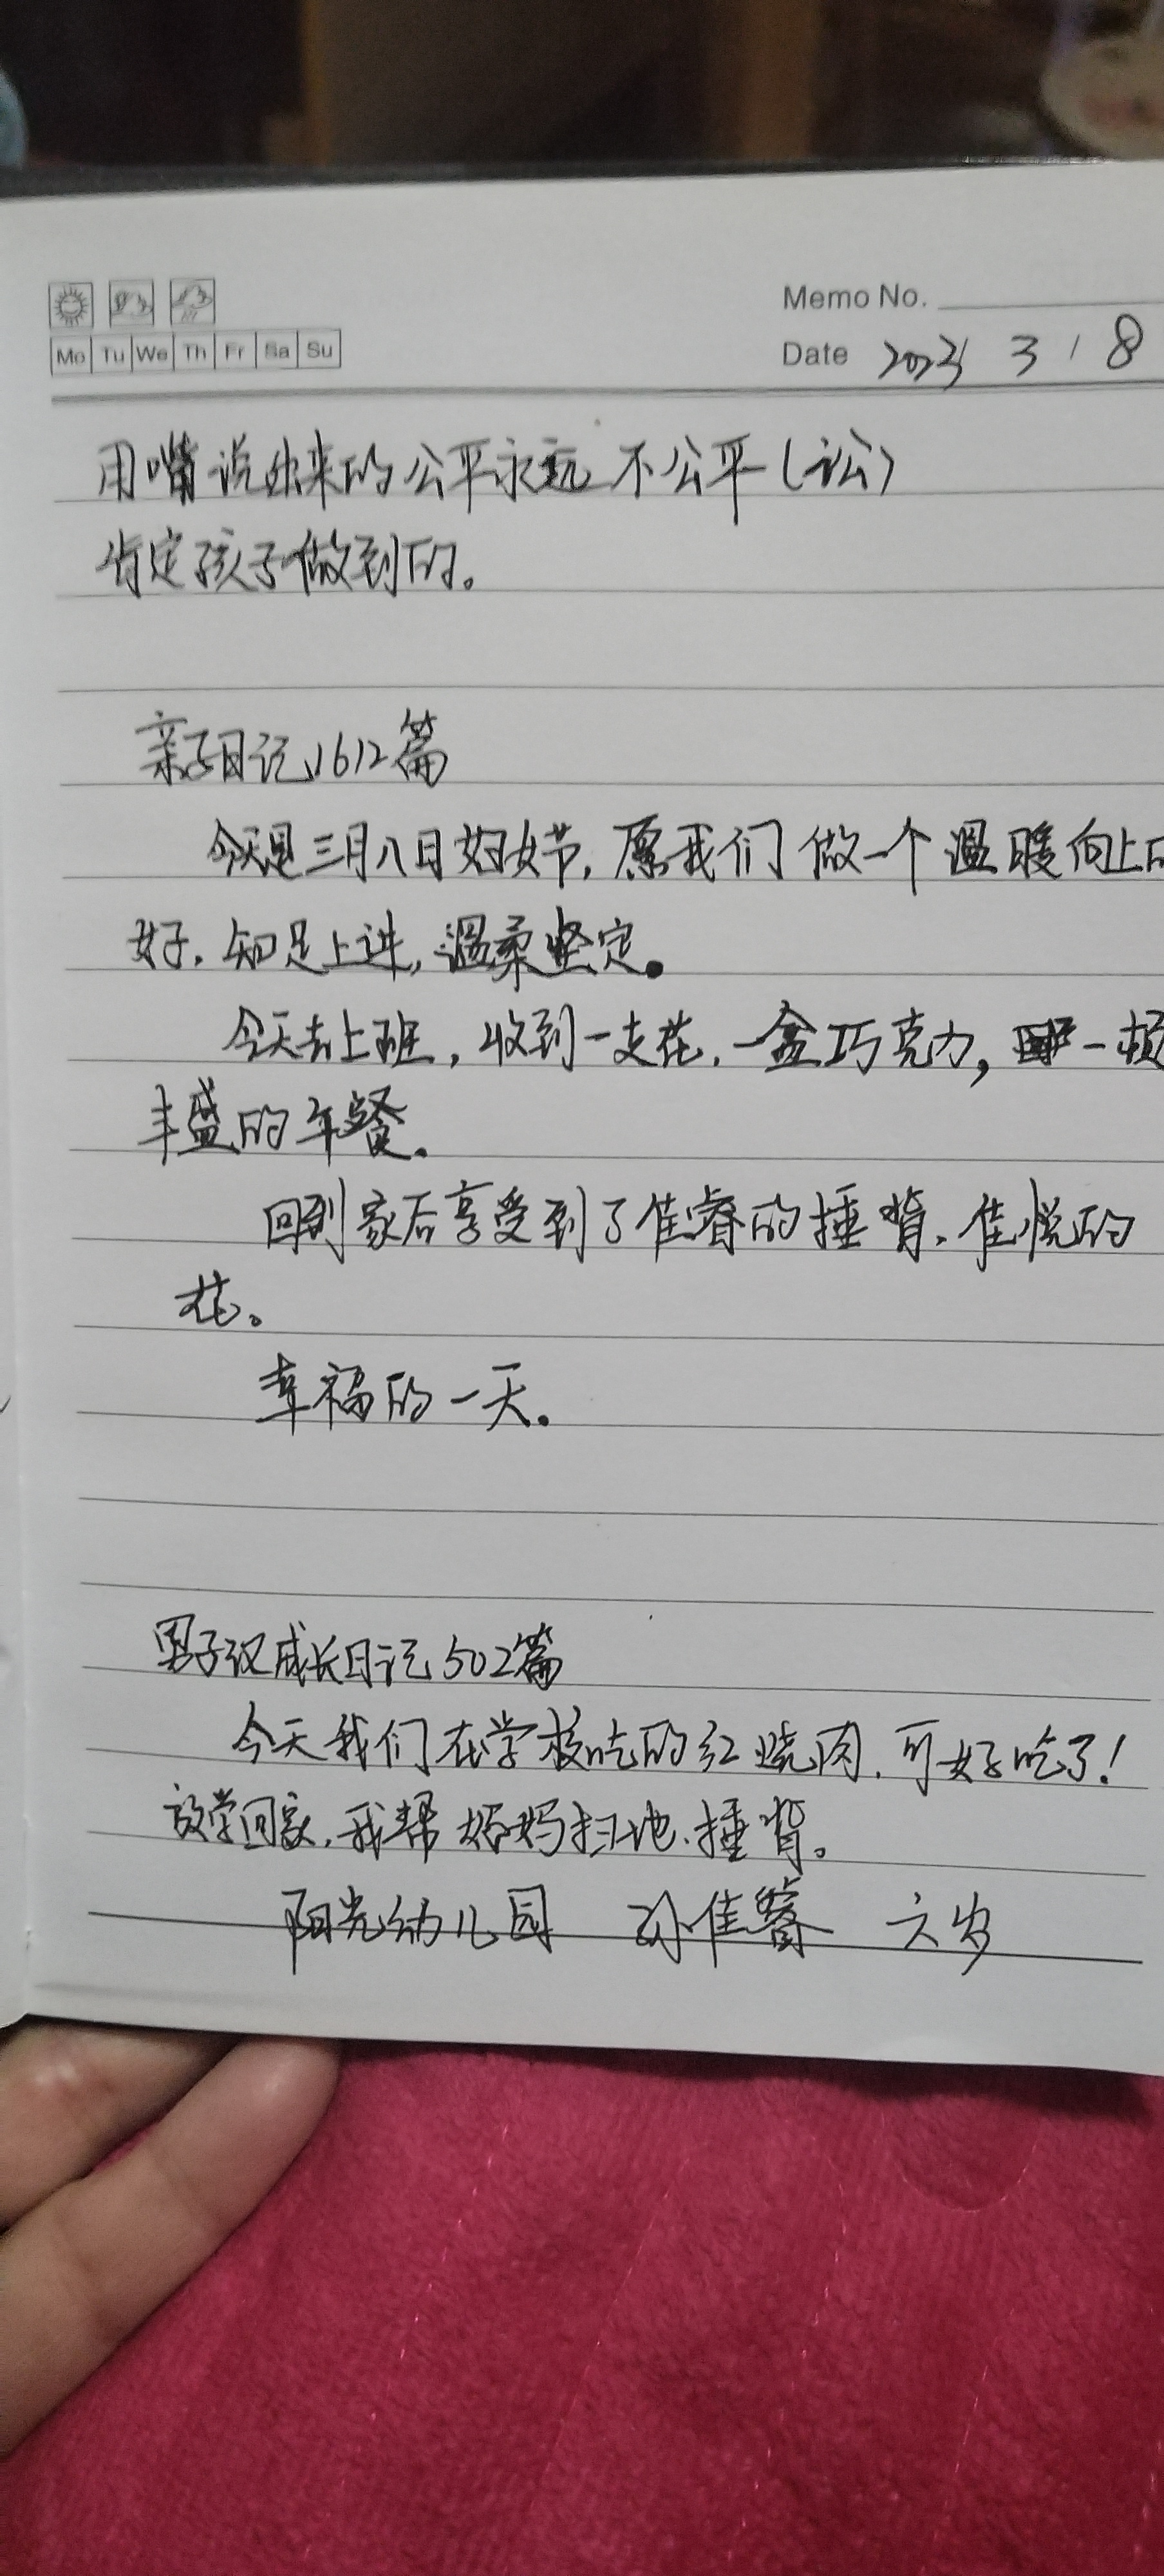 Memo No.
Mo Tu We Th Fr Sa Su
Date 2023 3 / 8
用嘴说出来的公平永远不公平(讼)
肯定孩子做到的。
亲子日记1612篇
今天是三月八日妇女节,愿我们做一个温暖向上的
女子.知足上进,温柔坚定。
今天去上班,收到一支花.一盒巧克力,一顿
丰盛的午餐.
回到家后享受到了佳睿的捶背.佳悦的
花。
幸福的一天.
男子汉成长日记502篇
今天我们在学校吃的红烧肉.可好吃了!
放学回家.我帮妈妈扫地.捶背。
阳光幼儿园 孙佳睿 六岁